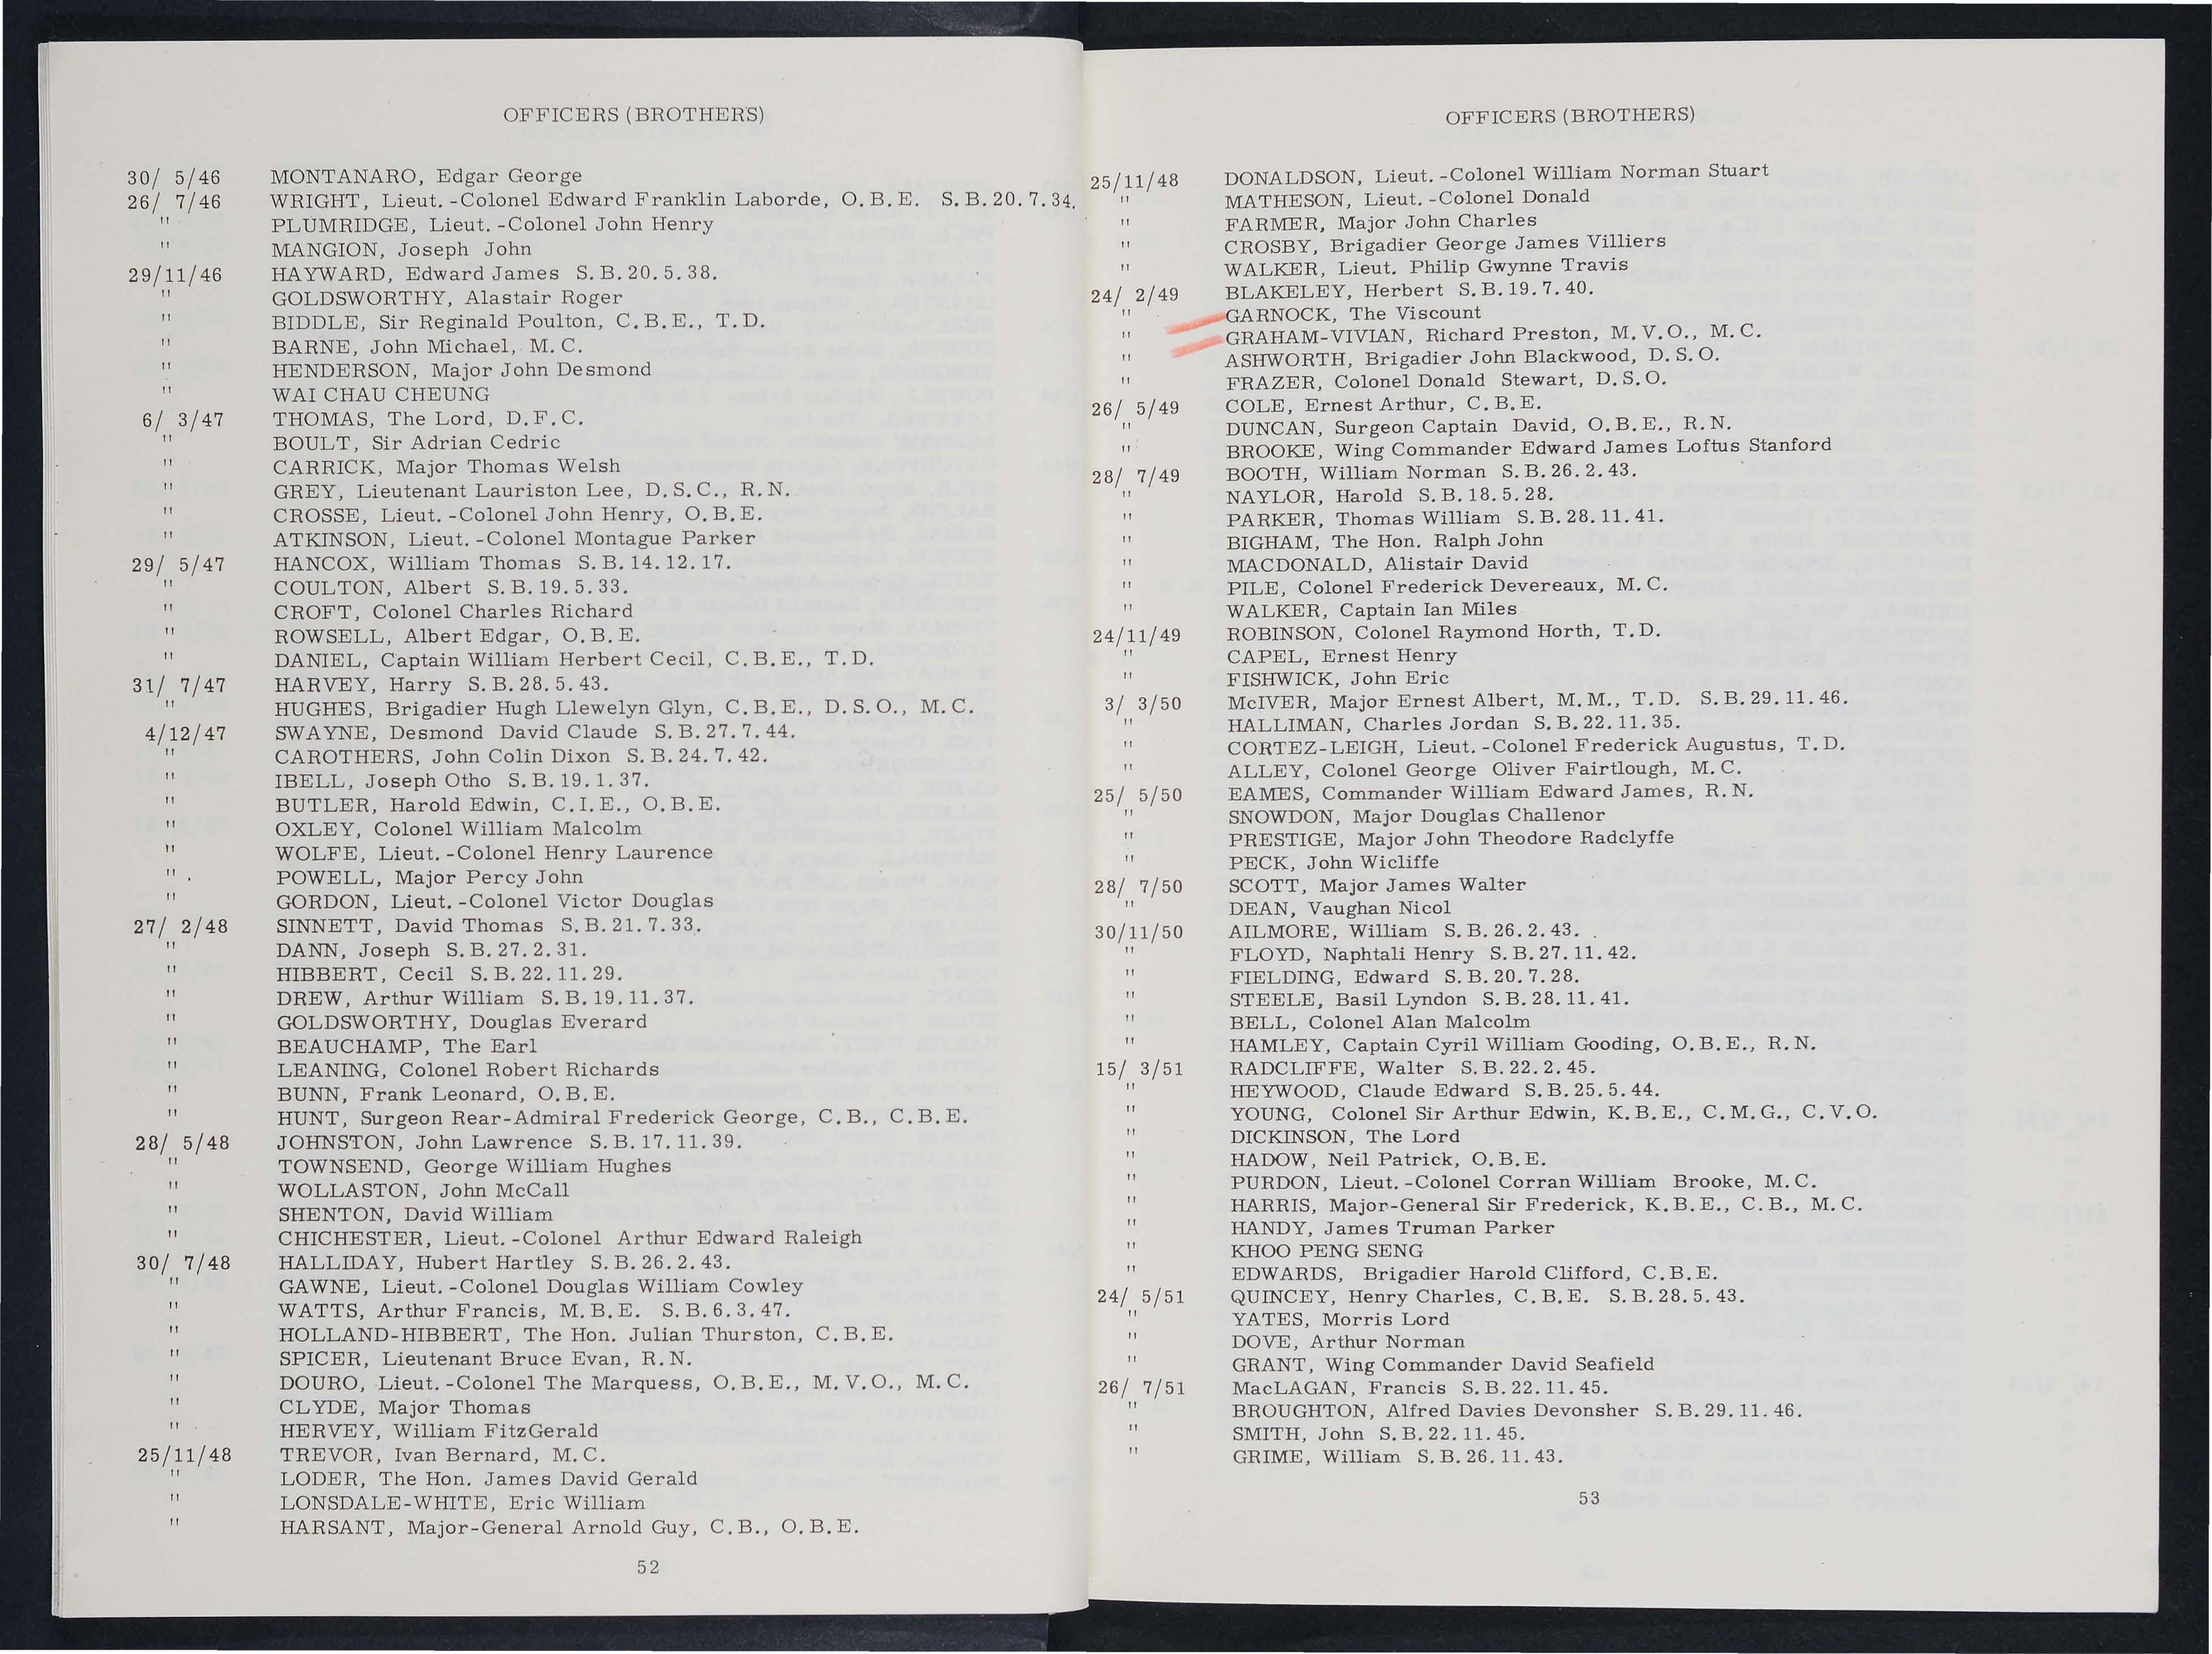 OFFICERS (BROTHERS)
30/ 5/46 MONTANARO, Edgar George
26/ 7/46 WRIGHT, Lieut.-Colonel Edward Franklin Laborde, O.B.E. S.B.20.7.34.
" PLUMRIDGE, Lieut.-Colonel John Henry
" MANGION, Joseph John
29/11/46 HAYWARD, Edward James S.B.20.5.38.
" GOLDSWORTHY, Alastair Roger
" BIDDLE, Sir Reginald Poulton, C.B.E., T.D.
" BARNE, John Michael, M.C.
" HENDERSON, Major John Desmond
" WAI CHAU CHEUNG
6/ 3/47 THOMAS, The Lord, D.F.C.
" BOULT, Sir Adrian Cedric
" CARRICK, Major Thomas Welsh
" GREY, Lieutenant Lauriston Lee, D.S.C., R.N.
" CROSSE, Lieut.-Colonel John Henry, O.B.E.
" ATKINSON, Lieut.-Colonel Montague Parker
29/ 5/47 HANCOX, William Thomas S.B.14.12.17.
" COULTON, Albert S.B.19.5.33.
" CROFT, Colonel Charles Richard
" ROWSELL, Albert Edgar, O.B.E.
" DANIEL, Captain William Herbert Cecil, C.B.E., T.D.
31/ 7/47 HARVEY, Harry S.B.28.5.43.
" HUGHES, Brigadier Hugh Llewelyn Glyn, C.B.E., D.S.O., M.C.
4/12/47 SWAYNE, Desmond David Claude S.B.27.7.44.
" CAROTHERS, John Colin Dixon S.B.24.7.42.
" IBELL, Joseph Otho S.B.19.1.37.
" BUTLER, Harold Edwin, C.I.E., O.B.E.
" OXLEY, Colonel William Malcolm
" WOLFE, Lieut.-Colonel Henry Laurence
" POWELL, Major Percy John
" GORDON, Lieut.-Colonel Victor Douglas
27/ 2/48 SINNETT, David Thomas S.B.21.7.33.
" DANN, Joseph S.B.27.2.31.
" HIBBERT, Cecil S.B.22.11.29.
" DREW, Arthur William S.B.19.11.37.
" GOLDSWORTHY, Douglas Everard
" BEAUCHAMP, The Earl
" LEANING, Colonel Robert Richards
" BUNN, Frank Leonard, O.B.E.
" HUNT, Surgeon Rear-Admiral Frederick George, C.B., C.B.E.
28/ 5/48 JOHNSTON, John Lawrence S.B.17.11.39.
" TOWNSEND, George William Hughes
" WOLLASTON, John McCall
" SHENTON, David William
" CHICHESTER, Lieut.-Colonel Arthur Edward Raleigh
30/ 7/48 HALLIDAY, Hubert Hartley S.B.26.2.43.
" GAWNE, Lieut.-Colonel Douglas William Cowley
" WATTS, Arthur Francis, M.B.E. S.B.6.3.47.
" HOLLAND-HIBBERT, The Hon. Julian Thurston, C.B.E.
" SPICER, Lieutenant Bruce Evan, R.N.
" DOURO, Lieut.-Colonel The Marquess, O.B.E., M.V.O., M.C.
" CLYDE, Major Thomas
" HERVEY, William FitzGerald
25/11/48 TREVOR, Ivan Bernard, M.C.
" LODER, The Hon. James David Gerald
" LONSDALE-WHITE, Eric William
" HARSANT, Major-General Arnold Guy, C.B., O.B.E.
52
OFFICERS (BROTHERS)
25/11/48 DONALDSON, Lieut.-Colonel William Norman Stuart
" MATHESON, Lieut.-Colonel Donald
" FARMER, Major John Charles
" CROSBY, Brigadier George James Villiers
" WALKER, Lieut. Philip Gwynne Travis
24/ 2/49 BLAKELEY, Herbert S.B.19.7.40.
" GARNOCK, The Viscount
" GRAHAM-VIVIAN, Richard Preston, M.V.O., M.C.
" ASHWORTH, Brigadier John Blackwood, D.S.O.
" FRAZER, Colonel Donald Stewart, D.S.O.
26/ 5/49 COLE, Ernest Arthur, C.B.E.
" DUNCAN, Surgeon Captain David, O.B.E., R.N.
" BROOKE, Wing Commander Edward James Loftus Stanford
28/ 7/49 BOOTH, William Norman S.B.26.2.43.
" NAYLOR, Harold S.B.18.5.28.
" PARKER, Thomas William S.B.28.11.41.
" BIGHAM, The Hon. Ralph John
" MACDONALD, Alistair David
" PILE, Colonel Frederick Devereaux, M.C.
" WALKER, Captain Ian Miles
24/11/49 ROBINSON, Colonel Raymond Horth, T.D.
" CAPEL, Ernest Henry
" FISHWICK, John Eric
3/ 3/50 McIVER, Major Ernest Albert, M.M., T.D. S.B.29.11.46.
" HALLIMAN, Charles Jordan S.B.22.11.35.
" CORTEZ-LEIGH, Lieut.-Colonel Frederick Augustus, T.D.
" ALLEY, Colonel George Oliver Fairtlough, M.C.
25/ 5/50 EAMES, Commander William Edward James, R.N.
" SNOWDON, Major Douglas Challenor
" PRESTIGE, Major John Theodore Radclyffe
" PECK, John Wicliffe
28/ 7/50 SCOTT, Major James Walter
" DEAN, Vaughan Nicol
30/11/50 AILMORE, William S.B.26.2.43.
" FLOYD, Naphtali Henry S.B.27.11.42.
" FIELDING, Edward S.B.20.7.28.
" STEELE, Basil Lyndon S.B.28.11.41.
" BELL, Colonel Alan Malcolm
" HAMLEY, Captain Cyril William Gooding, O.B.E., R.N.
15/ 3/51 RADCLIFFE, Walter S.B.22.2.45.
" HEYWOOD, Claude Edward S.B.25.5.44.
" YOUNG, Colonel Sir Arthur Edwin, K.B.E., C.M.G., C.V.O.
" DICKINSON, The Lord
" HADOW, Neil Patrick, O.B.E.
" PURDON, Lieut.-Colonel Corran William Brooke, M.C.
" HARRIS, Major-General Sir Frederick, K.B.E., C.B., M.C.
" HANDY, James Truman Parker
" KHOO PENG SENG
" EDWARDS, Brigadier Harold Clifford, C.B.E.
24/ 5/51 QUINCEY, Henry Charles, C.B.E. S.B.28.5.43.
" YATES, Morris Lord
" DOVE, Arthur Norman
" GRANT, Wing Commander David Seafield
26/ 7/51 MacLAGAN, Francis S.B.22.11.45.
" BROUGHTON, Alfred Davies Devonsher S.B.29.11.46.
" SMITH, John S.B.22.11.45.
" GRIME, William S.B.26.11.43.
53